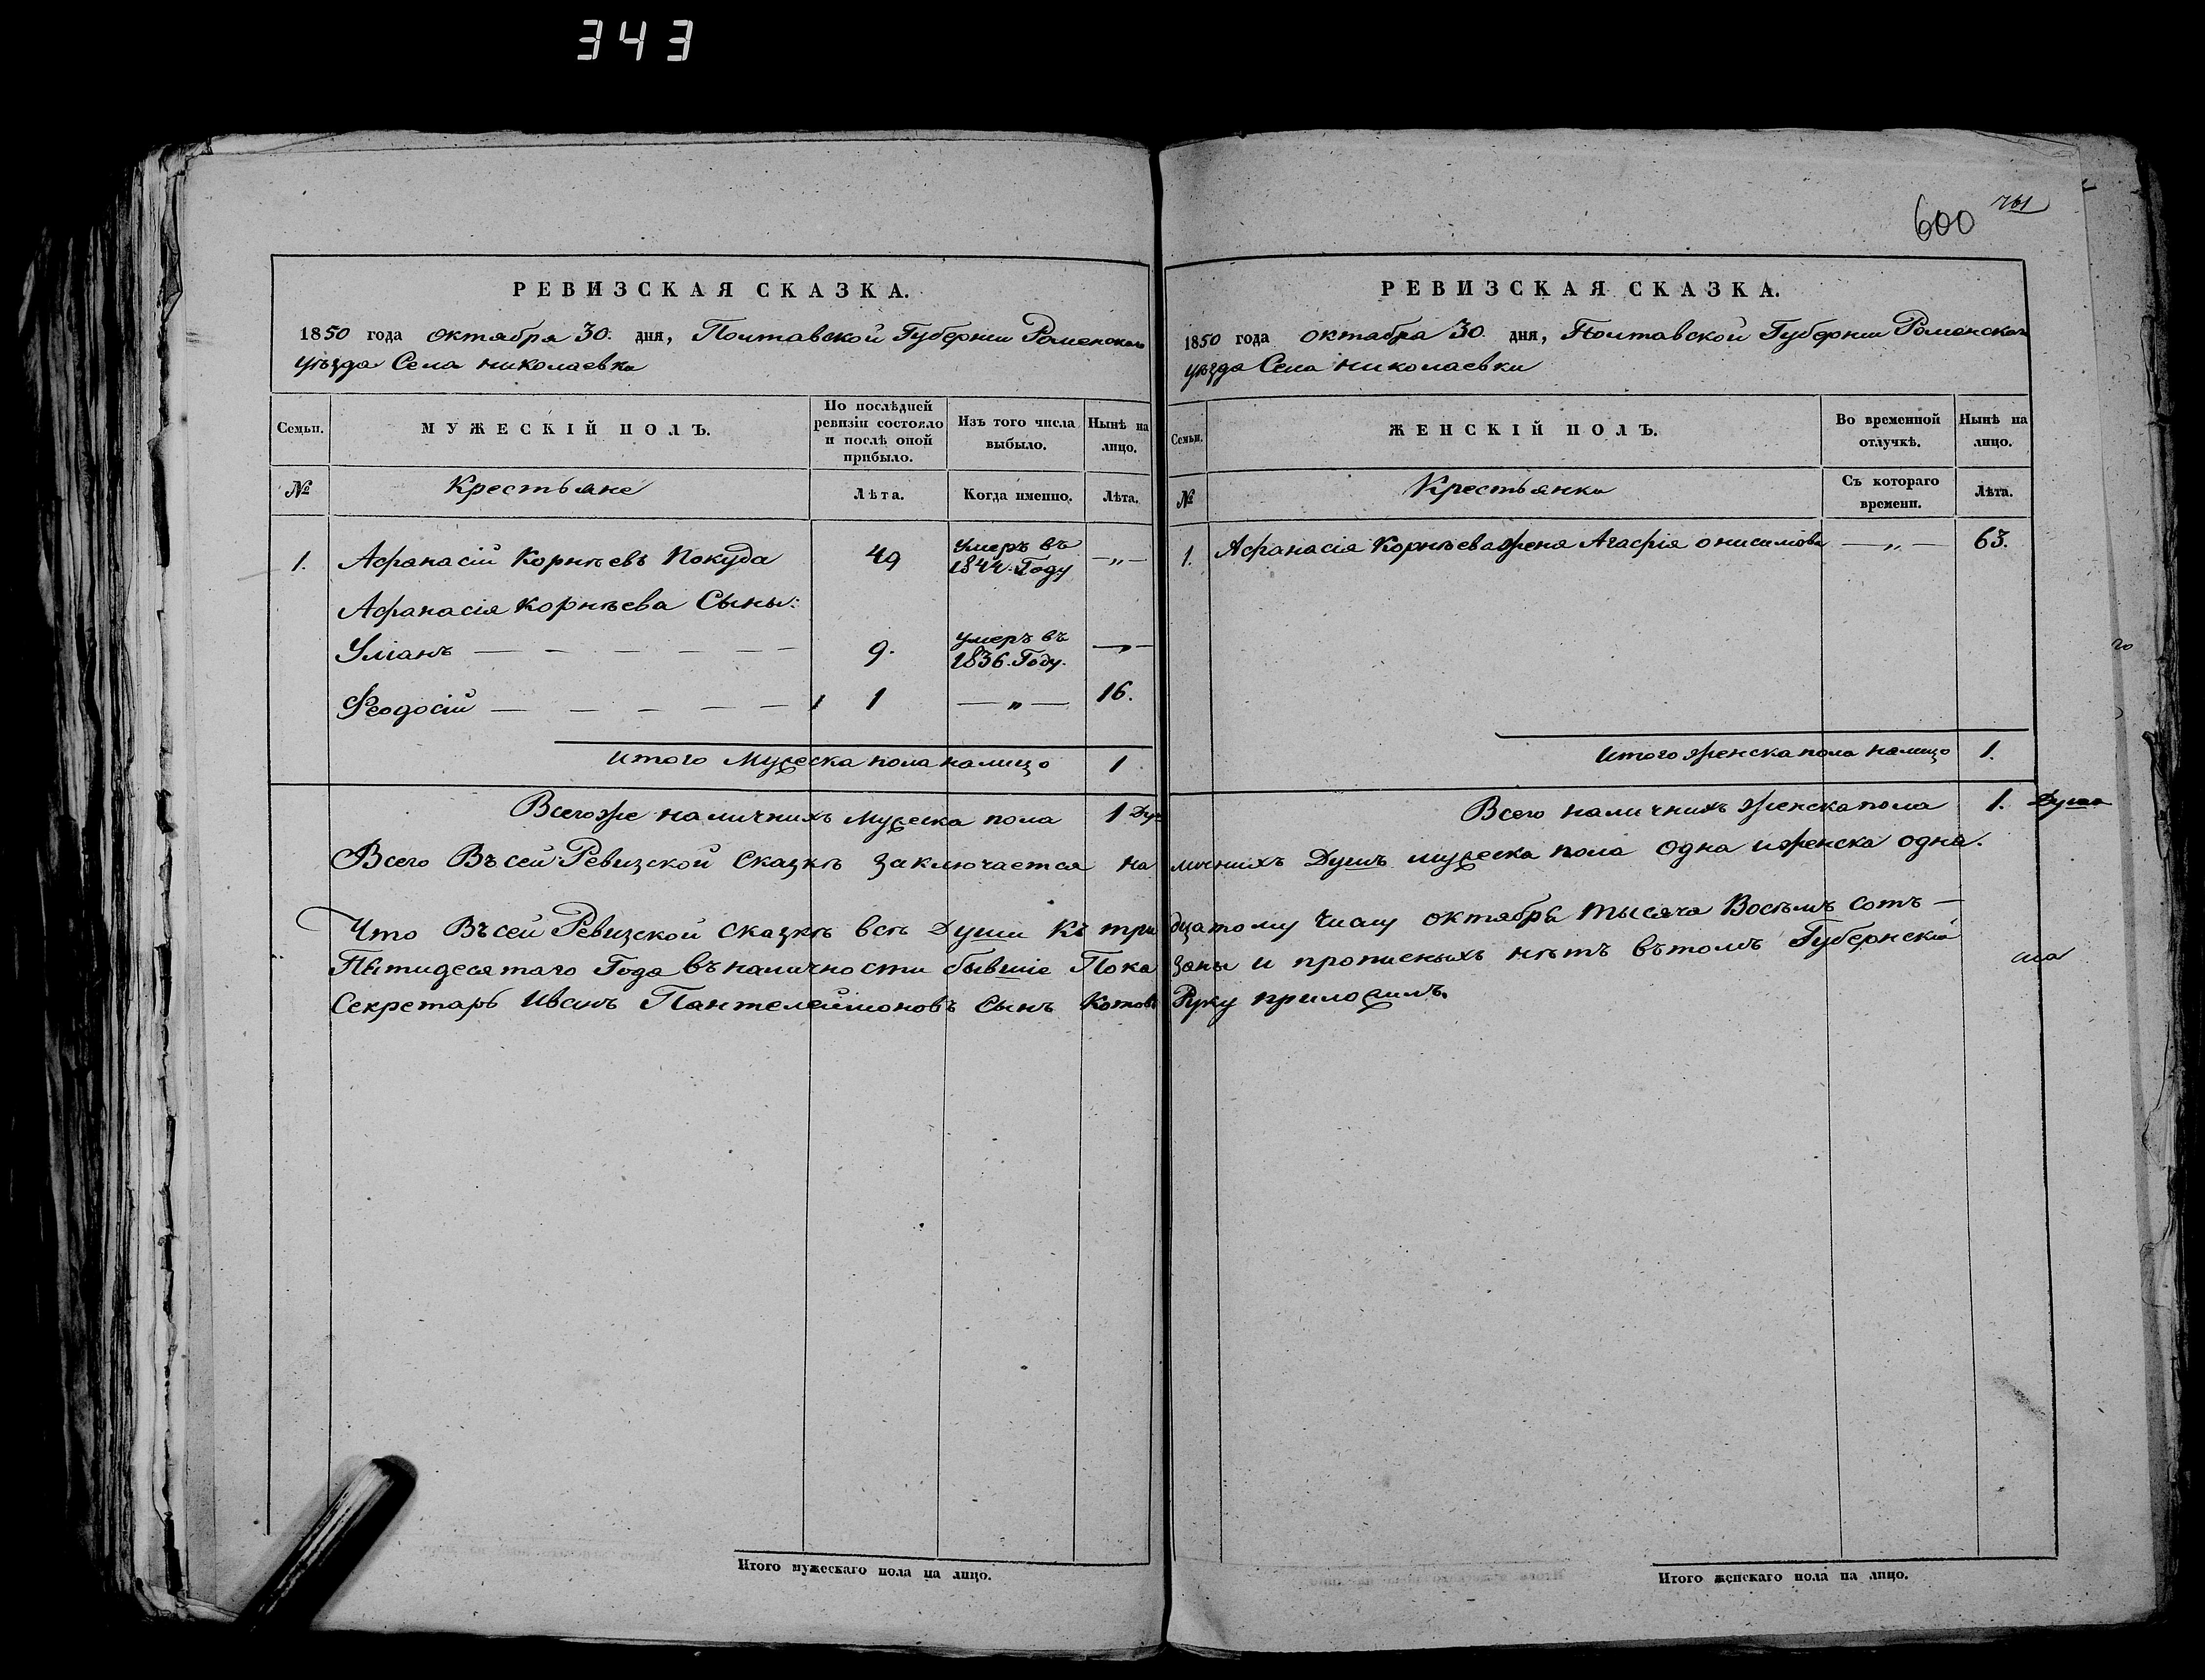 343
600 761
РЕВИЗСКАЯ СКАЗКА.
1850 года октября 30. дня, Полтавской Губернии Роменскаго
уѣзда Села Николаевки
Семьи.
МУЖЕСКІЙ ПОЛЪ.
По послѣдней ревизіи состояло и послѣ оной прибыло.
Изъ того числа выбыло.
Нынѣ на лицо.
№
Крестьяне
Лѣта.
Когда именно.
Лѣта.
1. Афанасій Корнѣевъ Покуда 49 умеръ въ 1844. Году —„—
Афанасія Корнѣева Сыны:
Уліанъ — — — — — — 9. умеръ въ 1836. Году. —„—
Феодосій — — — — — 1 —„— 16.
Итого Мужеска пола налицо 1
Всего же наличнихъ мужеска пола 1 Душ
РЕВИЗСКАЯ СКАЗКА.
1850 года октабра 30. дня, Полтавской Губернии Роменскаго
уѣзда Села Николаевки
Семьи.
ЖЕНСКІЙ ПОЛЪ.
Во временной отлучкѣ.
Нынѣ на лицо.
№
Крестьянки
Съ котораго времени.
Лѣта.
1. Афанасія Корнѣева жена Агафія Онисимова —„— 63.
Итого женска пола налицо 1.
Всего наличнихъ женска пола 1. Душа
Всего Въ сей Ревизской Сказкѣ заключается наличнихъ Душъ мужеска пола одна и женска одна.
Что Въ сей Ревизской сказкѣ всѣ Души Къ тридцатому числу октября тысяча Восѣмъ сотъ —
Пятидесятаго Года въ наличности бывшіе Показаны и прописныхъ нѣтъ въ томъ Губернскій
Секретарь Иванъ Пантелеймоновъ Сынъ Котовъ Руку приложилъ.
Итого мужескаго пола на лицо.
Итого женскаго пола на лицо.